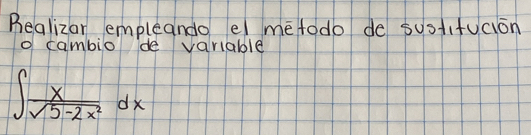 Realizar empleando el método de sustitución
o cambio de variable
∫ x/√5-2x² dx